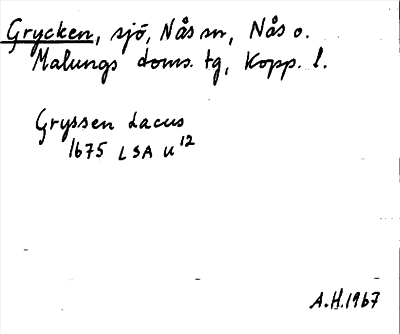 Grycken, sjö, Nås sn, Nås o.
Malungs doms. tg, Kopp. l.
Gryssen Lacus
1675 LSA U12
A.H.1967